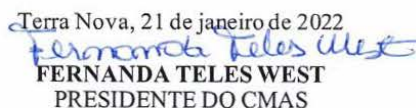 Terra Nova, 21 de janeiro de 2022
Fernanda Teles West
FERNANDA TELES WEST
PRESIDENTE DO CMAS